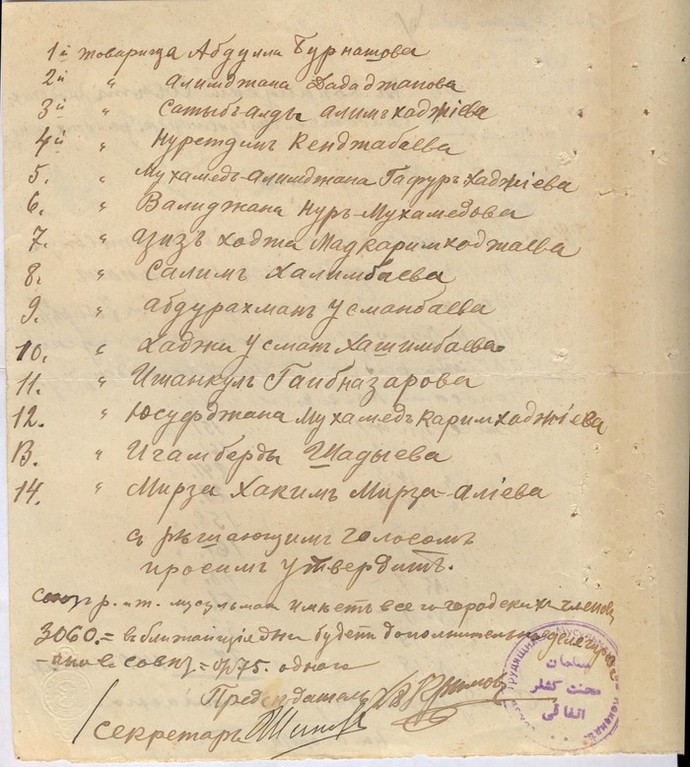 1й товарища Абдулла Бурнашова
2й " Алимджана Дададжанова
3й " Сатыбъ-алды Алимъ хаджiева
4й " Нуретдинъ Кенджабаева
5. " Мухамедъ-Алимджана Гафуръ Хаджiева
6. " Валиджана Нуръ-Мухамедова
7. " Азизъ ходжа Мадкаримходжаева
8. " Салимъ Халимбаева
9. " Абдурахманъ Усманбаева
10. " Хаджи Усманъ Хашимбаева
11. " Ишанкулъ Гаибназарова
12. " Юсуфджана Мухамедъ Каримхаджiева
13. " Игамберды Шадыева
14. " Мирза Хакимъ Мирза-Алiева
съ рѣшающимъ голосомъ
просимъ утвердить.
Союзъ р. и т. мусульман имѣетъ всего городскихъ членовъ
3060.= въ ближайшiе дни будетъ дополнительно
75. одного
Предсѣдатель
Секретарь
مسلمان
محنت کشلر
اتفاقی